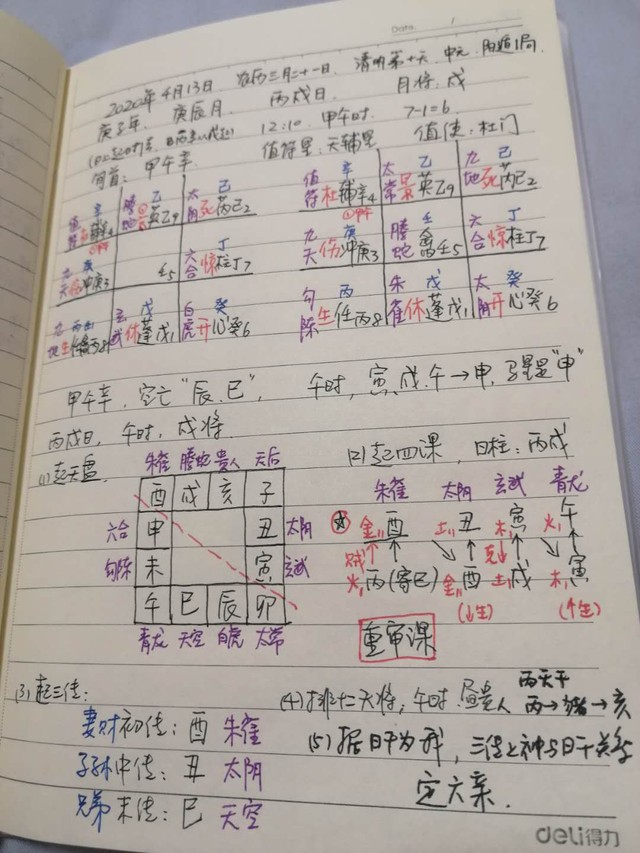 Date. /
2020年4月13日 农历三月二十一日. 清明第十天. 中元. 阳遁1局.
庚子年. 庚辰月 丙戌日. 月将:戌
12:10. 甲午时. 7-1=6
旬首: 甲午辛. 值符星:天辅星 值使:杜门
辛 乙 己
值符 辅4 腾蛇 英乙9 太阴 死 芮己2
甲午
庚 丁
九天 伤 冲庚3 5 六合 惊 柱丁7
戊 癸
生 任丙8 玄武 休 蓬戊1 白虎 开 心癸6
辛 乙 己
值符 杜 辅辛4 太常 景 英乙9 九地 死 芮己2
甲午
庚 壬 丁
九天 伤 冲庚3 腾蛇 禽壬5 六合 惊 柱丁7
丙 戊 癸
勾陈 生 任丙8 朱雀 休 蓬戊1 太阴 开 心癸6
甲午辛. 空亡“辰.巳”, 午时, 寅.戌.午→申, 马星是“申”
丙戌日, 午时, 戌将.
(1)起天盘.
朱雀 腾蛇 贵人 天后
酉 戌 亥 子
六合 申 丑 太阴
勾陈 未 寅 玄武
午 巳 辰 卯
青龙 天空 白虎 太常
(2)起四课, 日柱:丙戌
朱雀 太阴 玄武 青龙
金 酉 土 丑 木 寅 火 午
贼↑ ↑ ↘ ↑ 克 ↑ ↘ ↑
火 丙(寄巳) 金 酉 土 戌 木 寅
(↓生) (↑生)
重审课
(3)起三传:
妻财初传: 酉 朱雀
子孙中传: 丑 太阴
兄弟末传: 巳 天空
(4)排十二天将, 午时. 昼贵人 丙天干 丙→猪→亥
(5)据日干为我, 三传之神与日干关系
定六亲.
deli得力